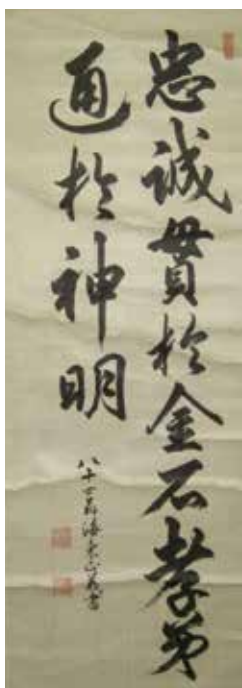 忠誠貫於金石孝弟
通於神明
八十書